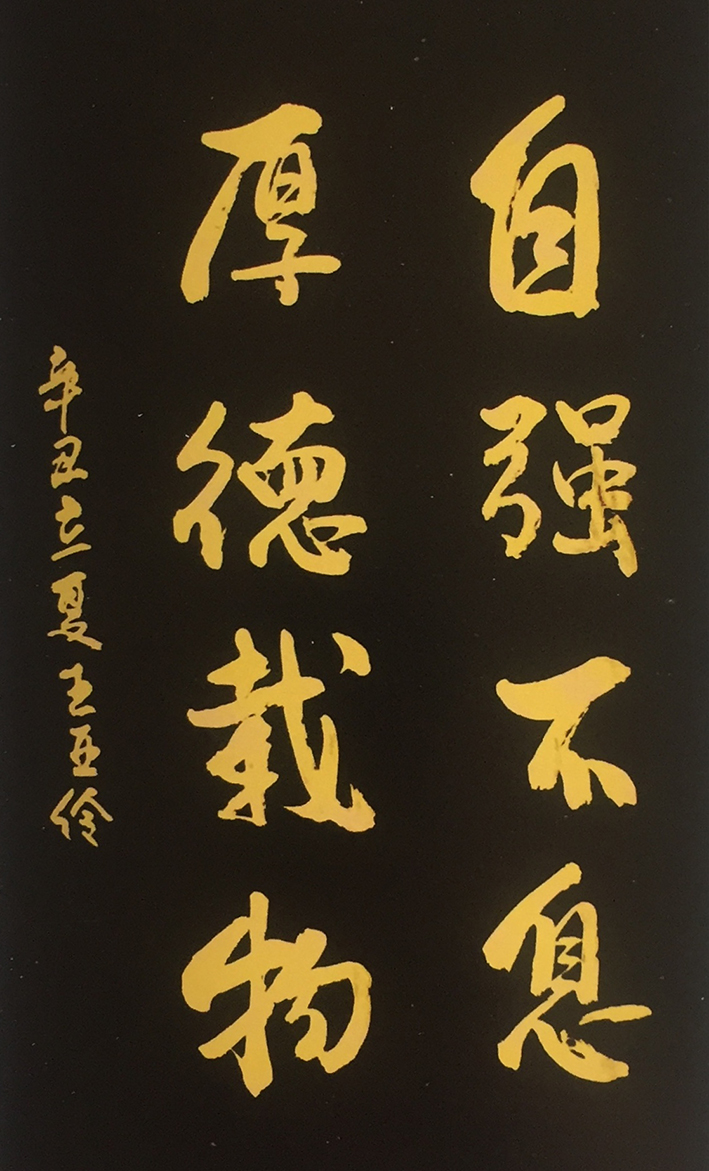 自强不息
厚德载物
辛丑立夏王亚伶